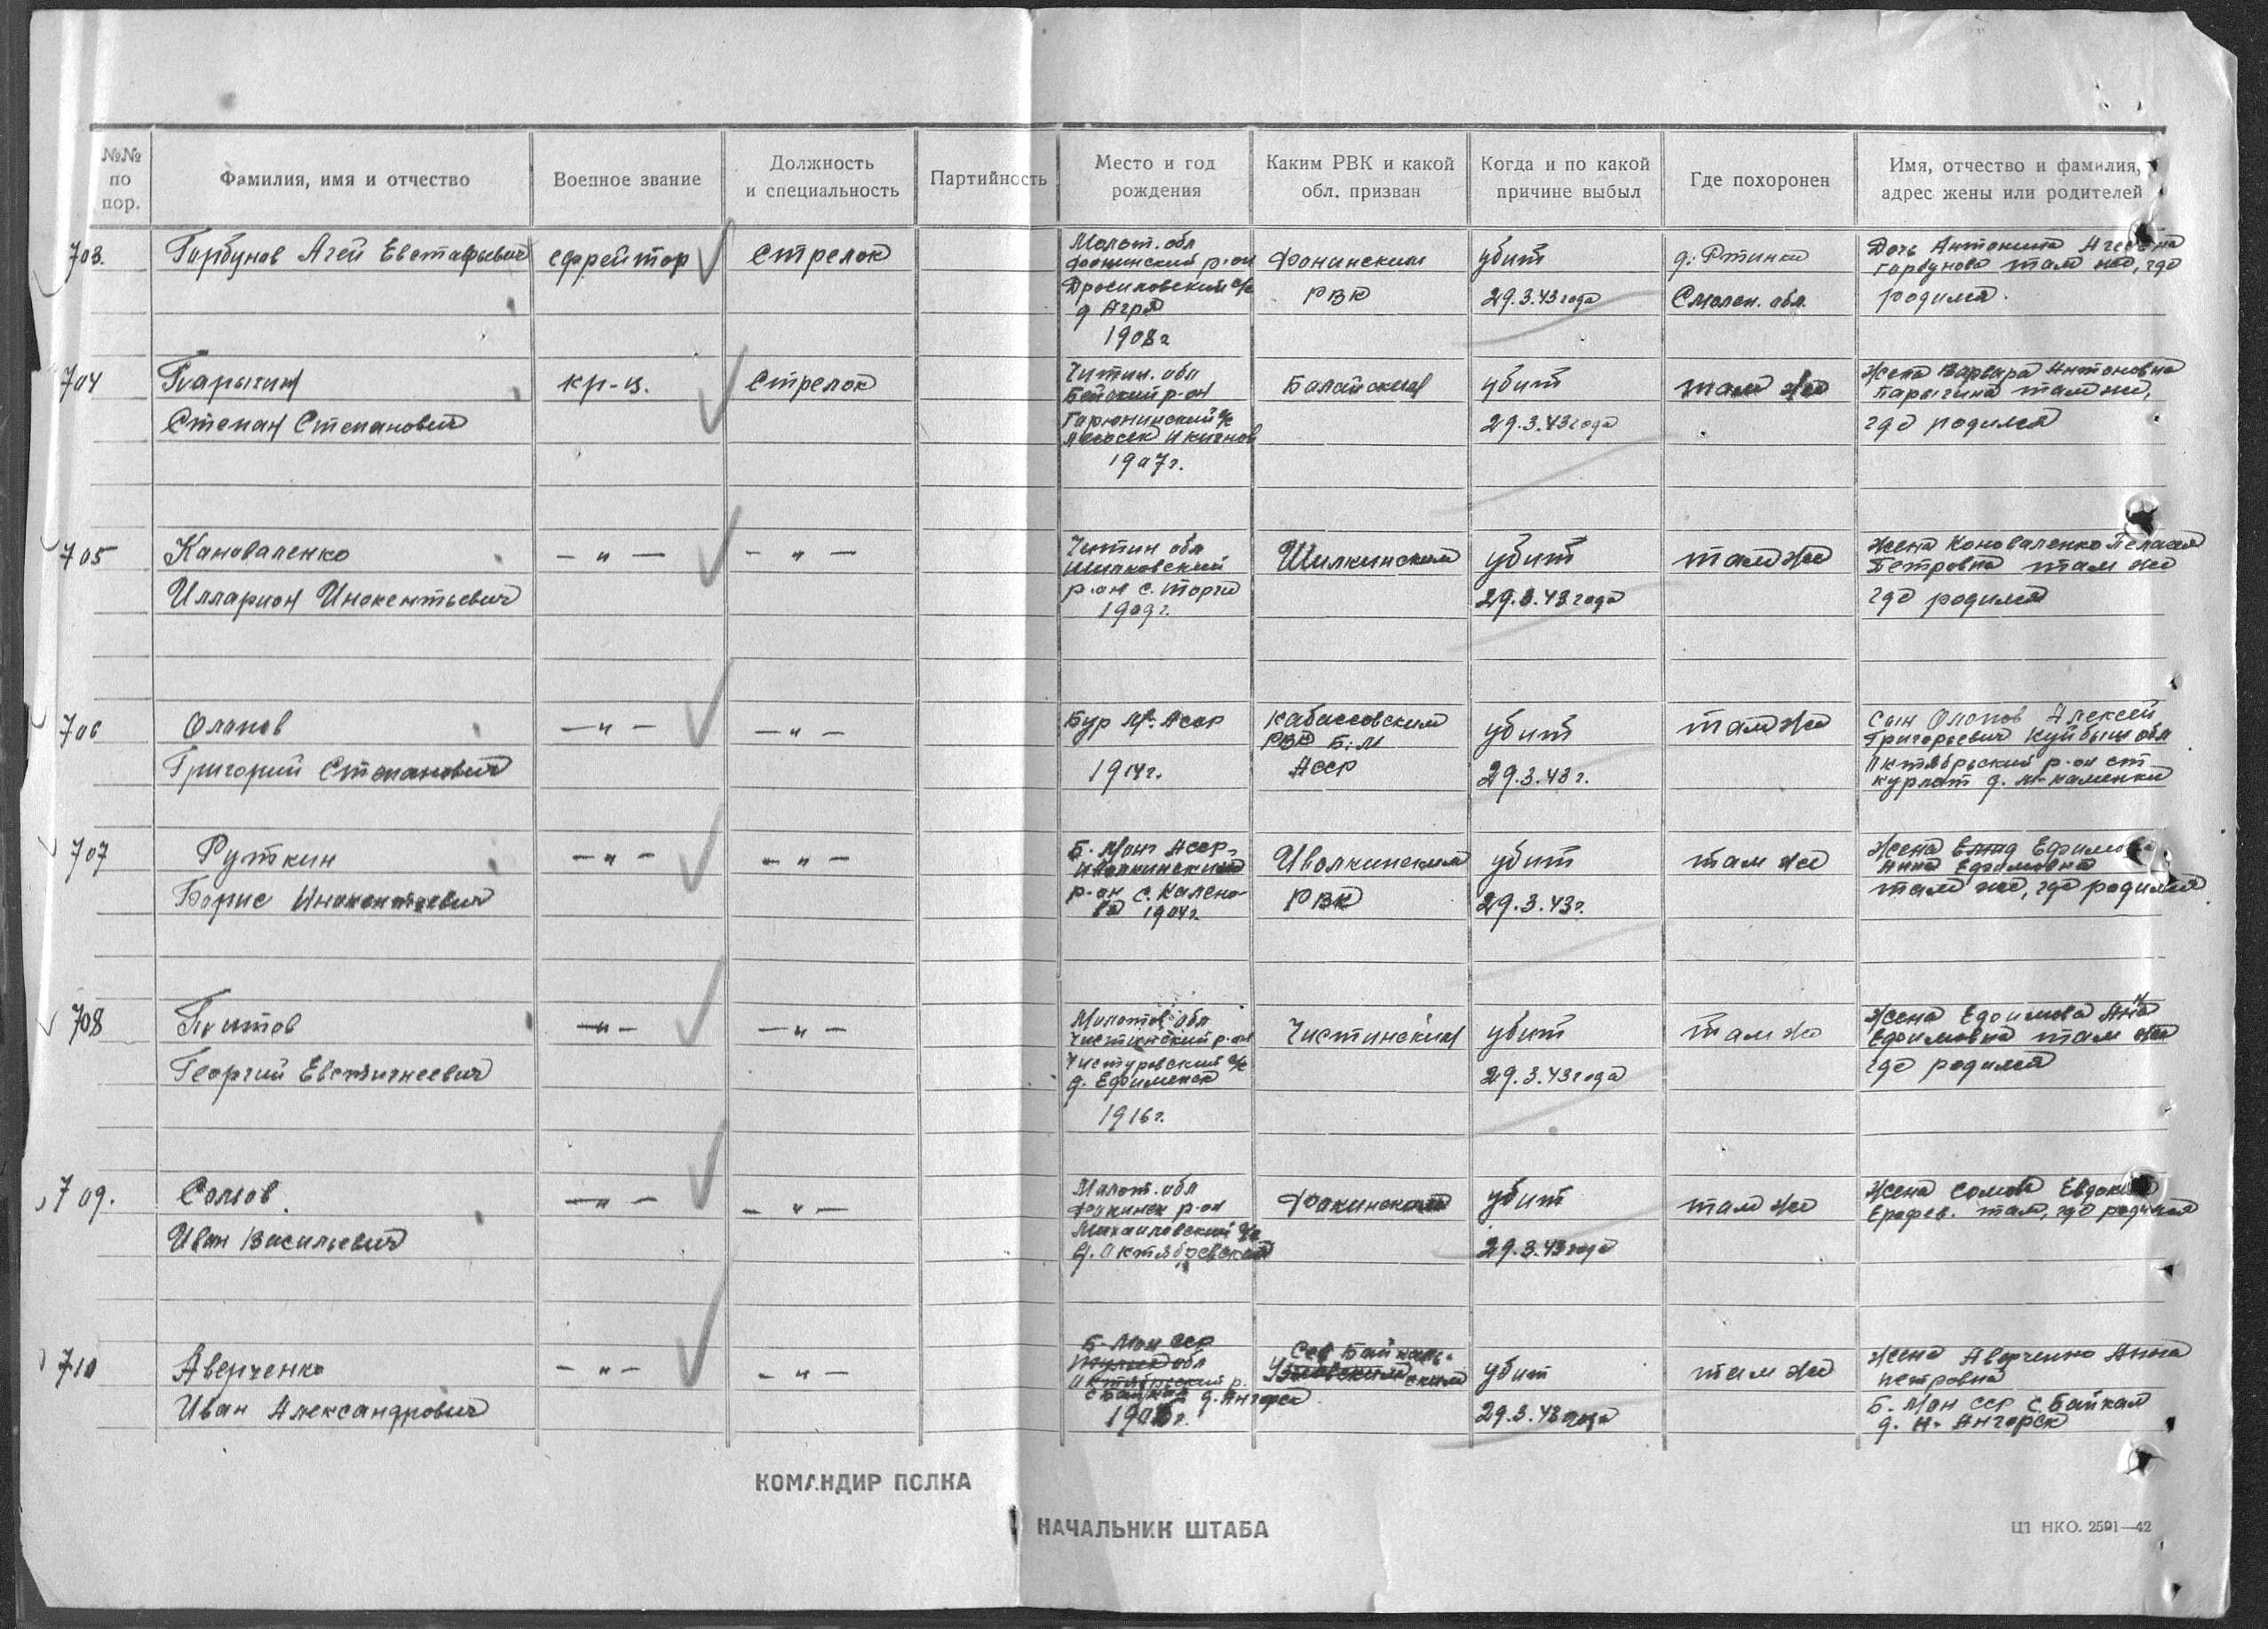 №№ по пор.
Фамилия, имя и отчество
Военное звание
Должность и специальность
Партийность
Место и год рождения
Каким РВК и какой обл. призван
Когда и по какой причине выбыл
Где похоронен
Имя, отчество и фамилия, адрес жены или родителей
703.
Горбунов Агей Евстафьевич
ефрейтор
Стрелок
Молот. обл
Фокинский р-он
с/с
д Агря
1908 г
Фокинским
РВК
убит
29.3.43 года
д. Ртинки
Смолен. обл.
Дочь Антонина Агеевна
Горбунова там же, где
родился.
704
Парыгин
Степан Степанович
кр-ц.
Стрелок
Читин. обл
р-он
с/с
1907 г.
убит
29.3.43 года
там же
Жена Варвара Антоновна
Парыгина там же,
где родился
705
Кановаленко
Илларион Инокентьевич
— " —
— " —
Читин обл
Шилковский
р-он с. Торга
1909 г.
Шилкинским
убит
29.3.43 года
там же
Жена Коноваленко Пелагея
Петровна там же
где родился
706
Олопов
Григорий Степанович
— " —
— " —
Бур М. Асср
1914 г.
РВК Б. М
Асср
убит
29.3.43 г.
там же
Сын Олопов Алексей
Григорьевич Куйбыш обл
Октябрьский р-он ст
д. М-Каменки
707
Руткин
Борис Инокентьевич
— " —
— " —
Б. Монг Асср
Иволкинский
р-он с. Калено-
ва 1904 г.
Иволкинским
РВК
убит
29.3.43 г.
там же
Жена Ефимова
Анна Ефимовна
там же, где родился
708
Титов
Георгий Евстигнеевич
— " —
— " —
Молотов обл
Частинский р-он
с/с
д. Ефименск
1916 г.
Частинским
убит
29.3.43 года
там же
Жена Ефимова Анна
Ефимовна там же
где родился
709.
Сомов
Иван Васильевич
— " —
— " —
Молот. обл
Фокинск р-он
Михайловский с/с
д. Октябревский
Фокинским
убит
29.3.43 года
там же
Жена Сомова Евдокия
Ерофев. там, где родился
710
Аверченко
Иван Александрович
— " —
— " —
Б-Мон сср
обл
Октябрьский р.
с Байкал д. Ангарск
1905 г.
Сев Байкаль-
ским
убит
29.3.43 года
там же
Жена Аверченко Анна
Петровна
Б. Мон сср с. Байкал
д. Н-Ангарск
КОМАНДИР ПОЛКА
НАЧАЛЬНИК ШТАБА
ЦТ НКО. 2591—42